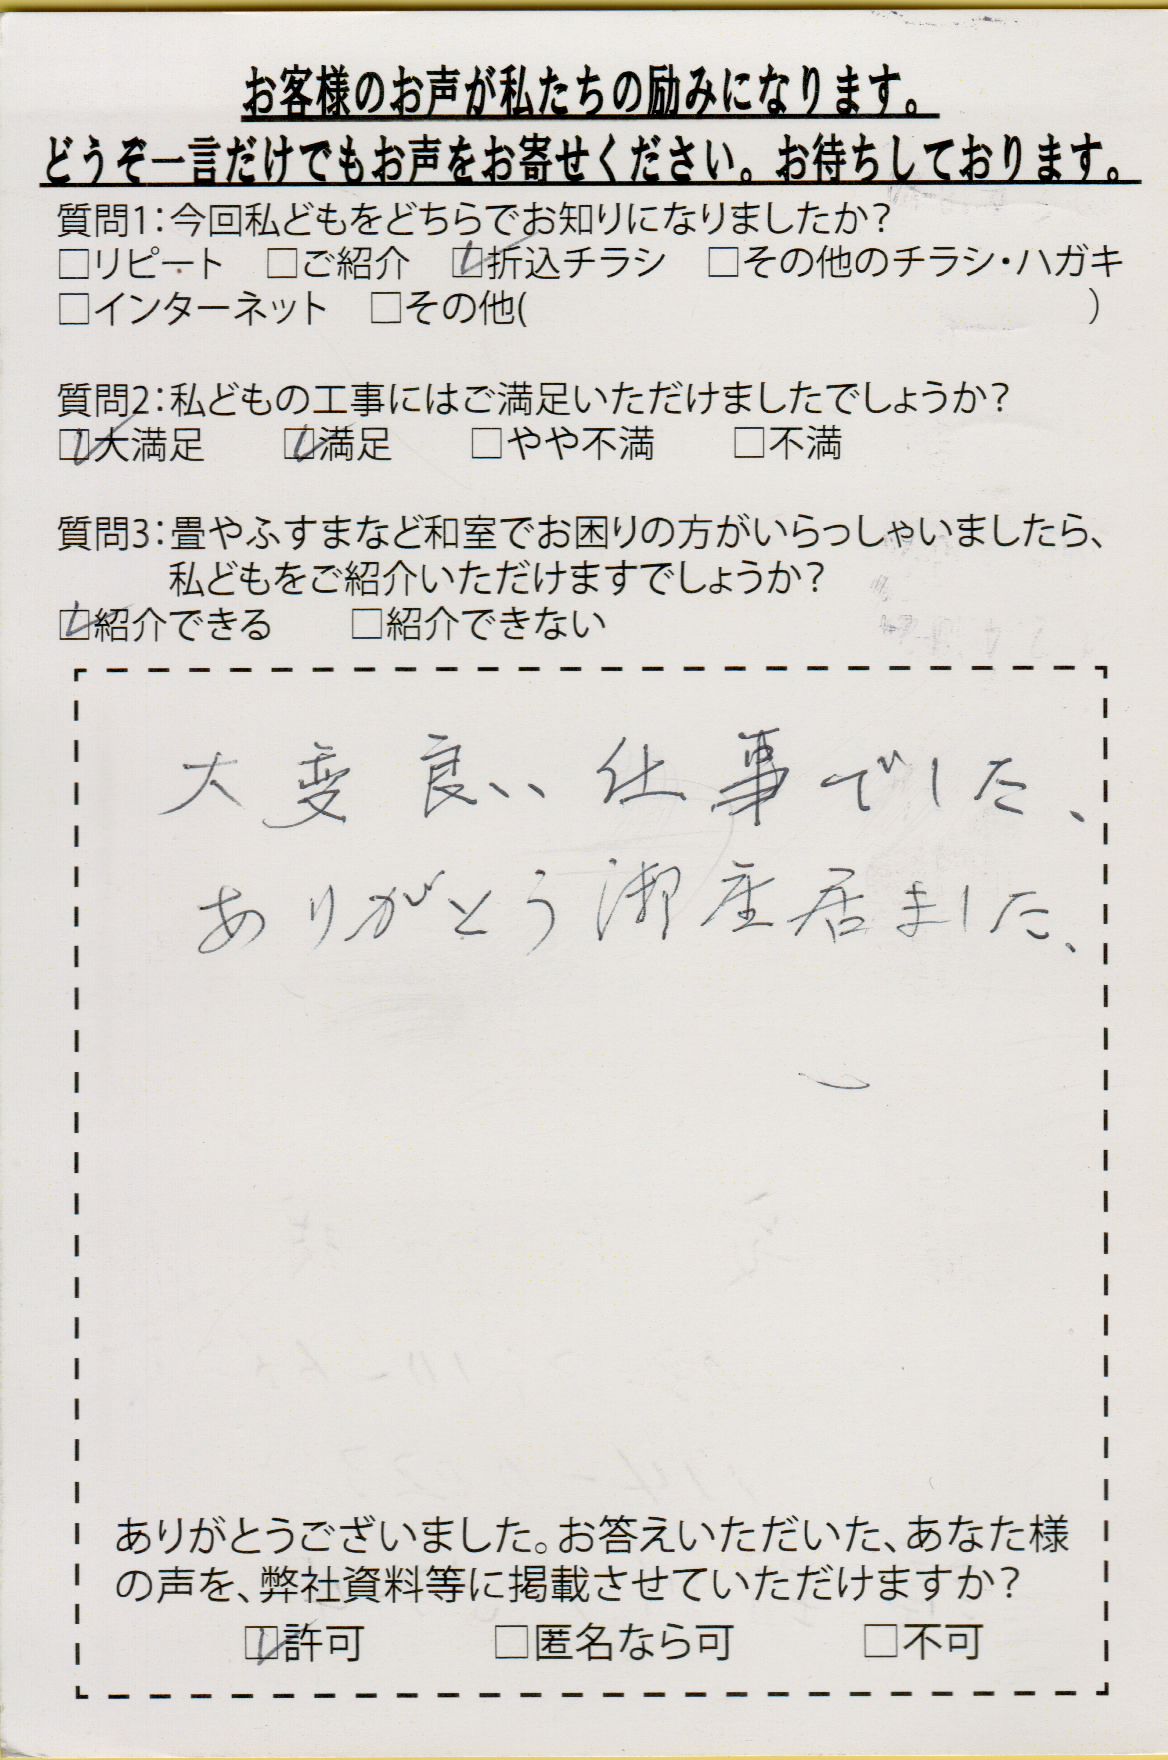 お客様のお声が私たちの励みになります。
どうぞ一言だけでもお声をお寄せください。お待ちしております。
質問1：今回私どもをどちらでお知りになりましたか？
□リピート　□ご紹介　☑折込チラシ　□その他のチラシ・ハガキ
□インターネット　□その他(　　　　　　　　　　　　　　　)
質問2：私どもの工事にはご満足いただけましたでしょうか？
☑大満足　☑満足　□やや不満　□不満
質問3：畳やふすまなど和室でお困りの方がいらっしゃいましたら、
私どもをご紹介いただけますでしょうか？
☑紹介できる　□紹介できない
大変良い仕事でした、
ありがとう御座居ました、
ありがとうございました。お答えいただいた、あなた様
の声を、弊社資料等に掲載させていただけますか？
☑許可　□匿名なら可　□不可